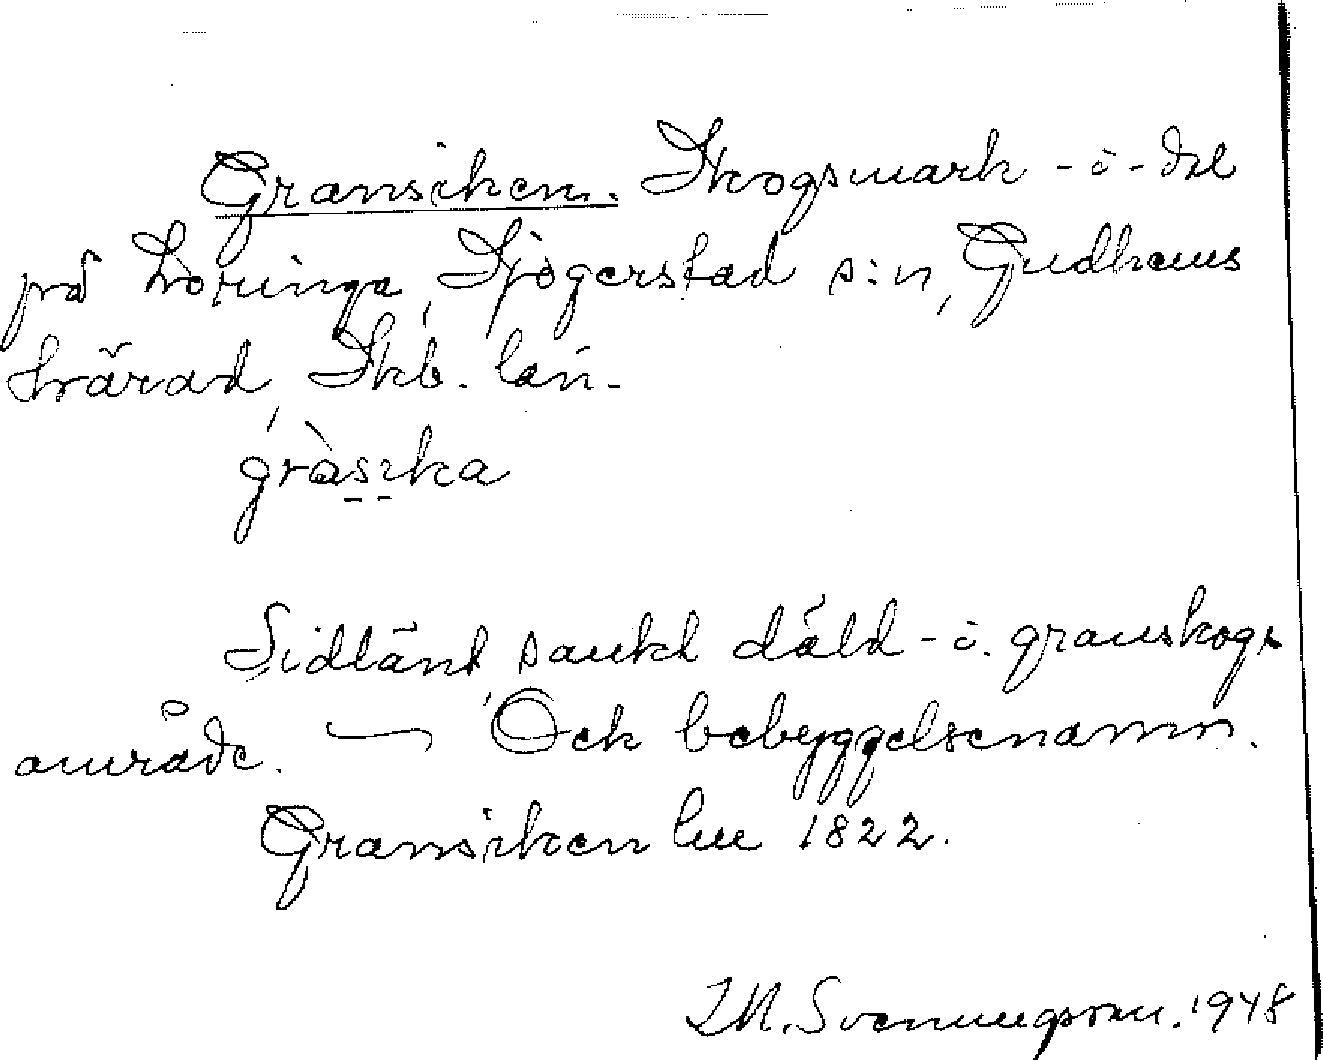 Gransiken. Skogsmark - o - del
på Loringa, Sjögerstad s:n, Gudhems
härad, Skb. län.
gràsıka
Sidlänt, sankt däld - o. granskogs
område. — Och bebyggelsenamn.
Gransiken lm 1822.
I.M. Svenungsson. 1948